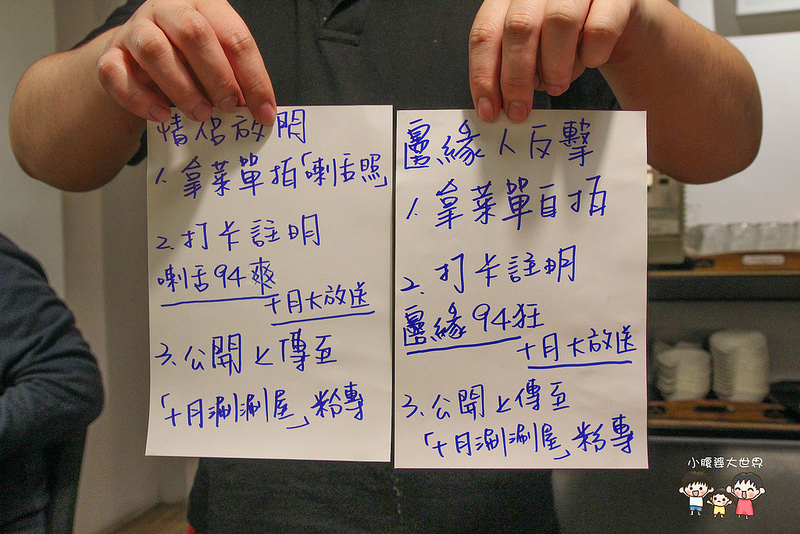 情侶放閃
1. 拿菜單拍「喇舌照」
2. 打卡註明
喇舌94爽
十月大放送
3. 公開上傳至
「十月涮涮屋」粉專
邊緣人反擊
1. 拿菜單自拍
2. 打卡註明
邊緣94狂
十月大放送
3. 公開上傳至
「十月涮涮屋」粉專
小腹婆大世界